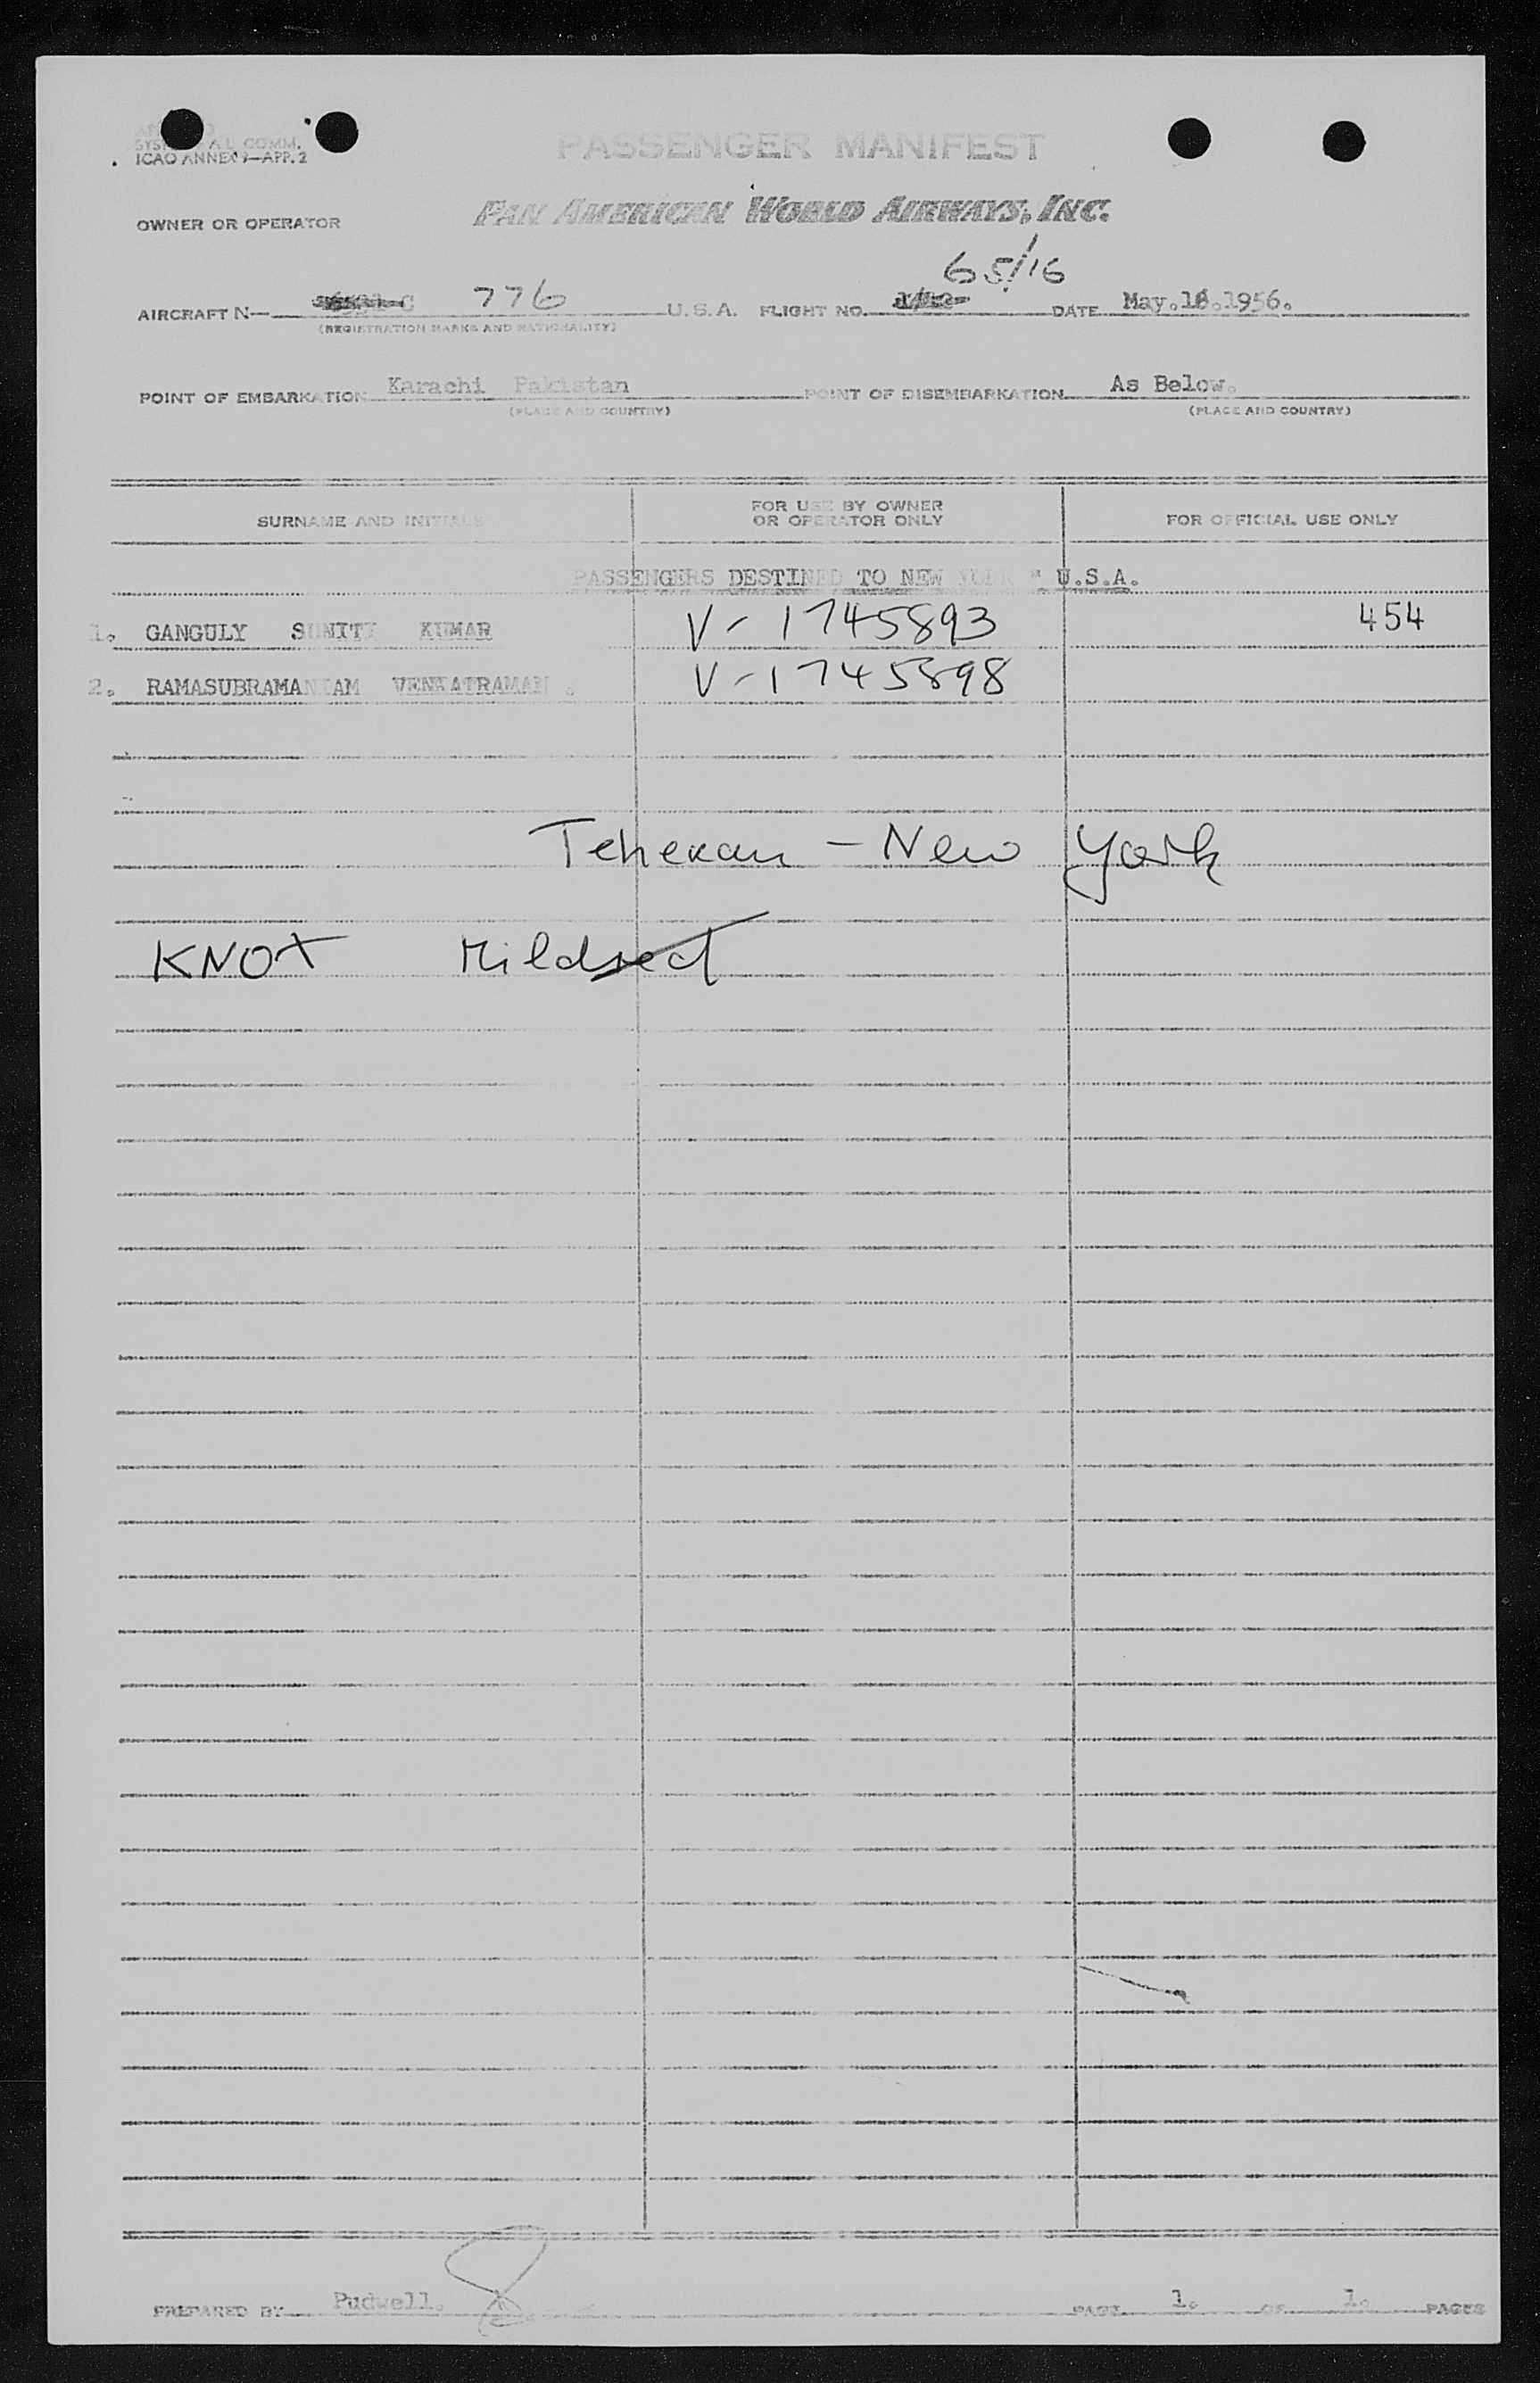 PASSENGER MANIFEST
ICAO ANNEX 9—APP. 2
OWNER OR OPERATOR PAN AMERICAN WORLD AIRWAYS, INC.
65/16
AIRCRAFT N— 776 U.S.A. FLIGHT NO. DATE May.18.1956.
(REGISTRATION MARKS AND NATIONALITY)
POINT OF EMBARKATION Karachi Pakistan POINT OF DISEMBARKATION As Below.
(PLACE AND COUNTRY) (PLACE AND COUNTRY)
SURNAME AND INITIALS FOR USE BY OWNER OR OPERATOR ONLY FOR OFFICIAL USE ONLY
PASSENGERS DESTINED TO NEW YORK " U.S.A.
1. GANGULY SUNITI KUMAR V-1745893 454
2. RAMASUBRAMANIAM VENKATRAMAN. V-1745898
Teheran - New York
KNOX Mildred
PREPARED BY Pudwell. PAGE 1. OF 1. PAGES